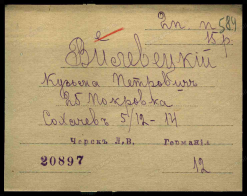 2п п 584
15 р.
Вилевецкій
Кузьма Петровичъ
2б Покровка
Сохачевъ 5/12-14
Черскъ Л.В. Германія
20897
12